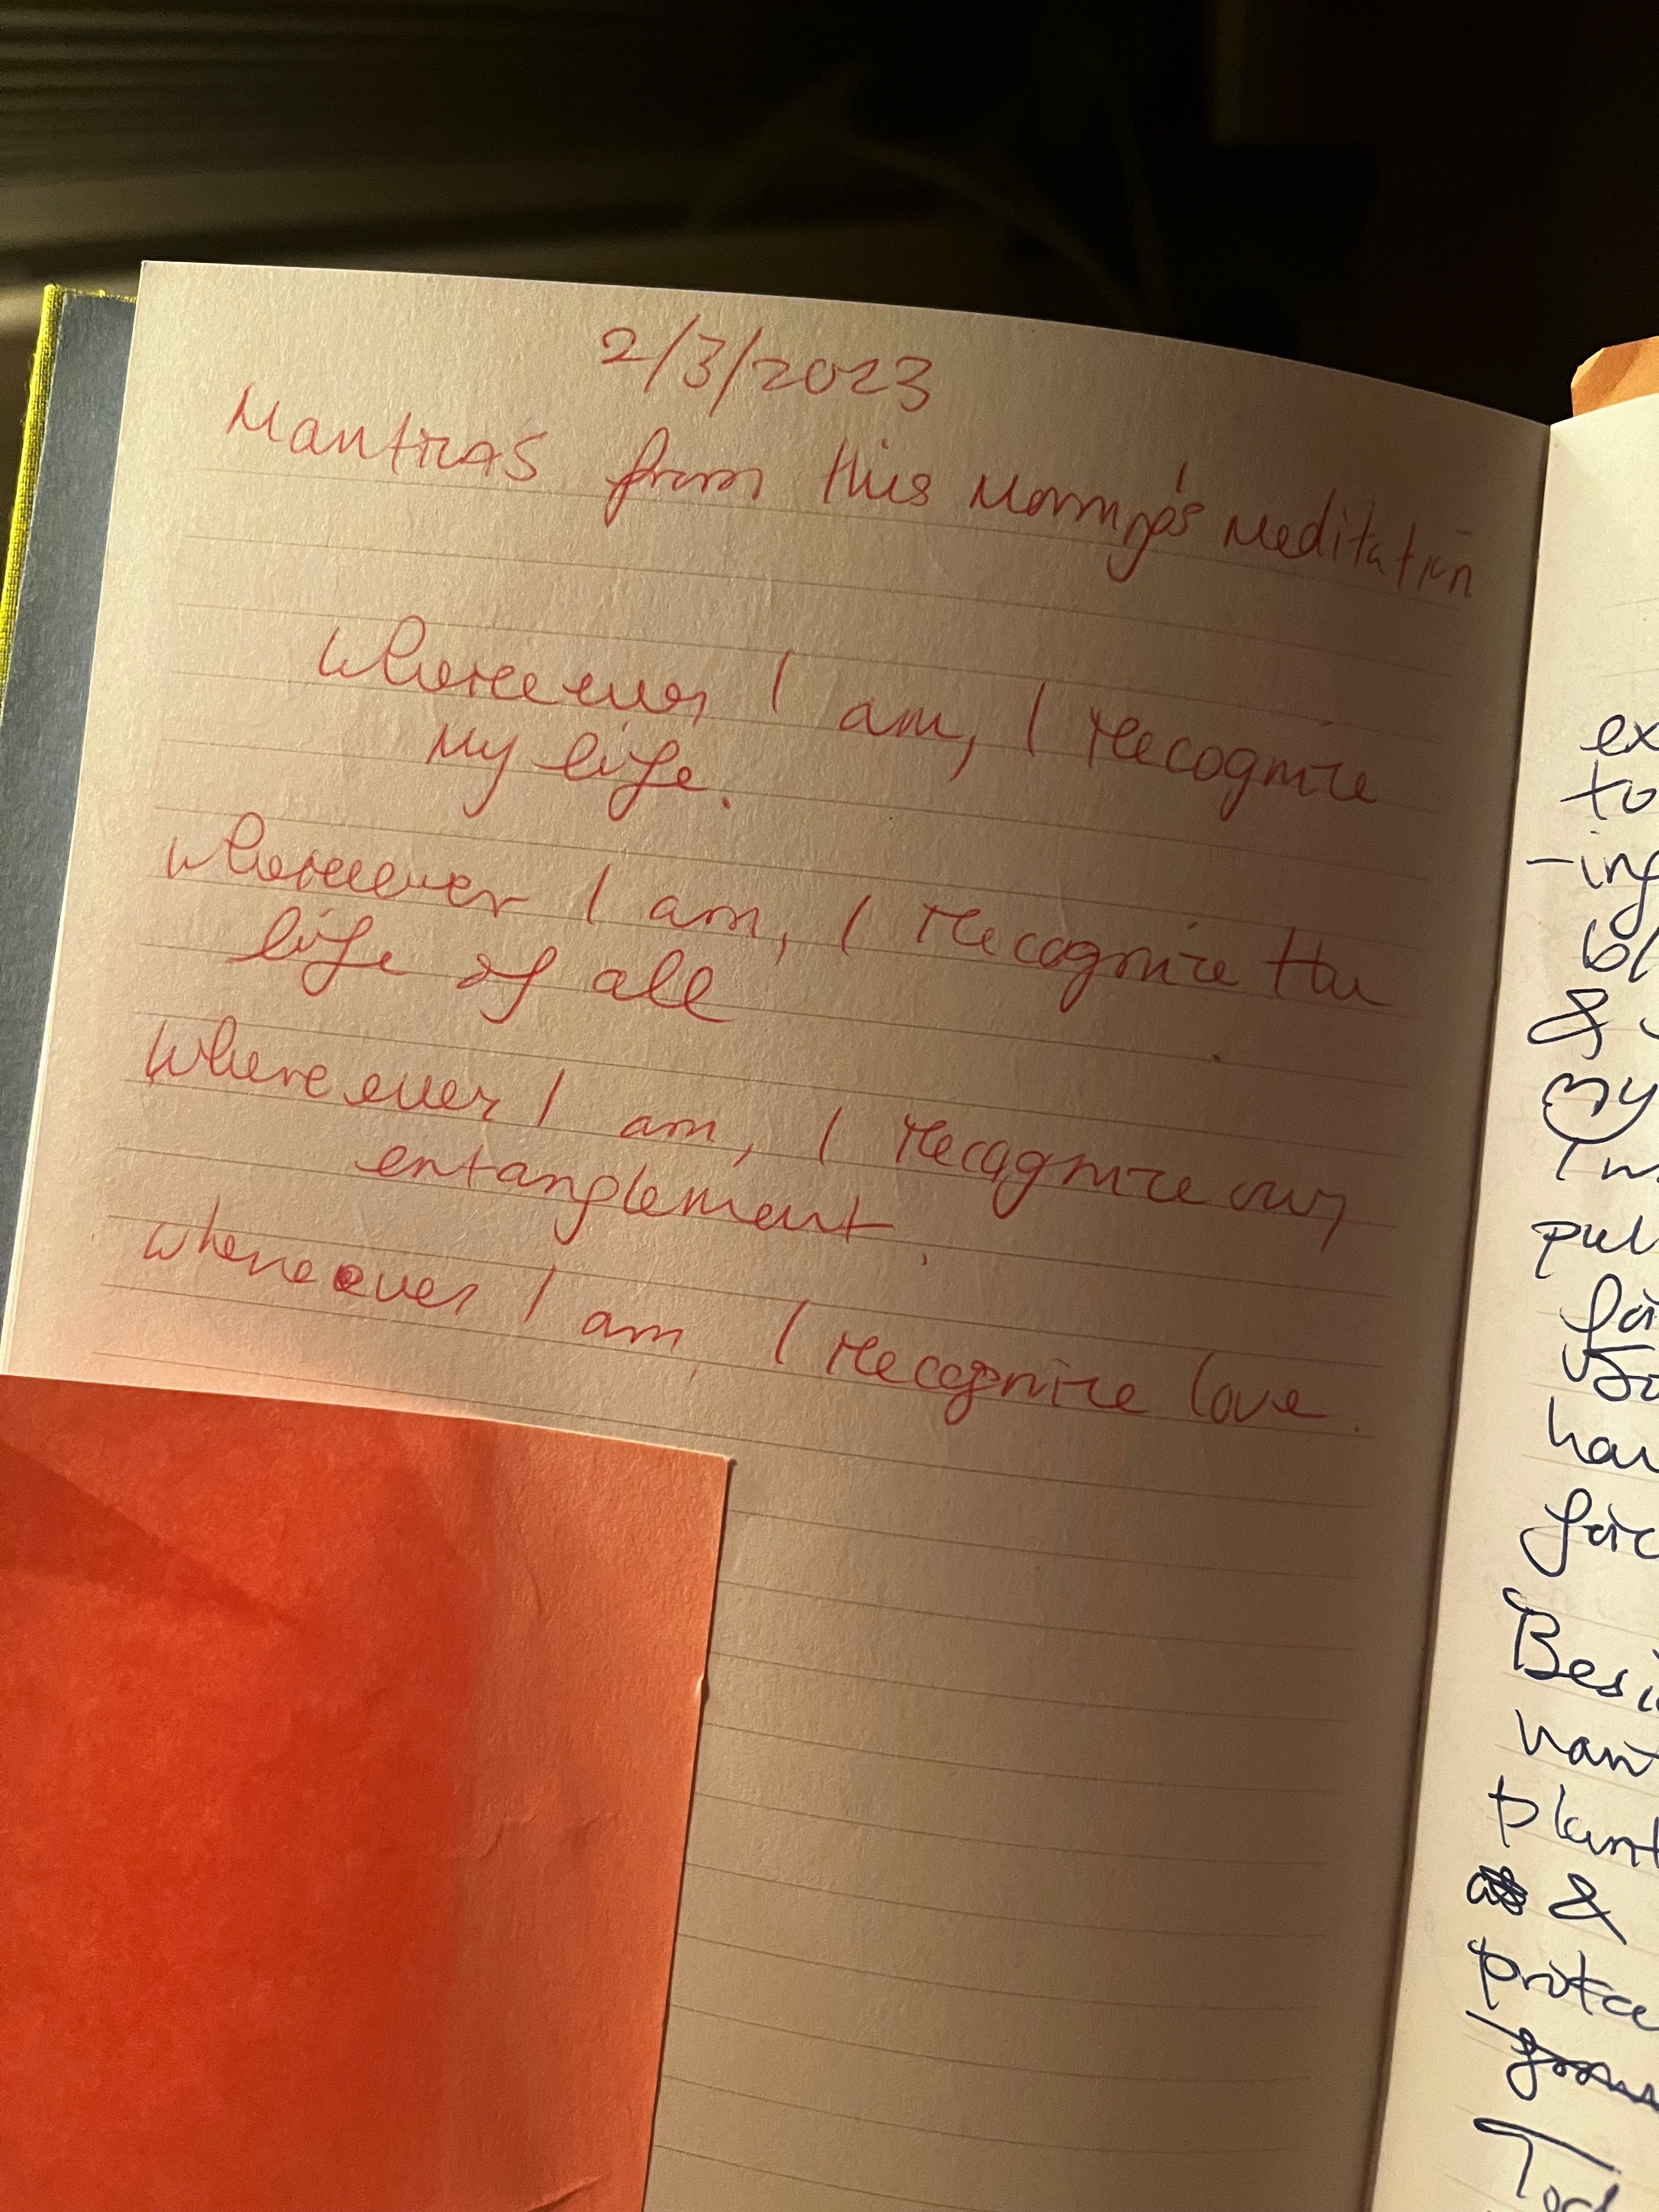 2/3/2023
Mantras from this Morning's Meditation
Whereever I am, I recognize
My life.
whereever I am, I recognize the
life of all
Whereever I am, I recognize our
entanglement.
whereever I am, I recognize love.
ex
to
-ing
bl
&
my
pul
for
hav
Besi
want
plant
&
prote
Tod